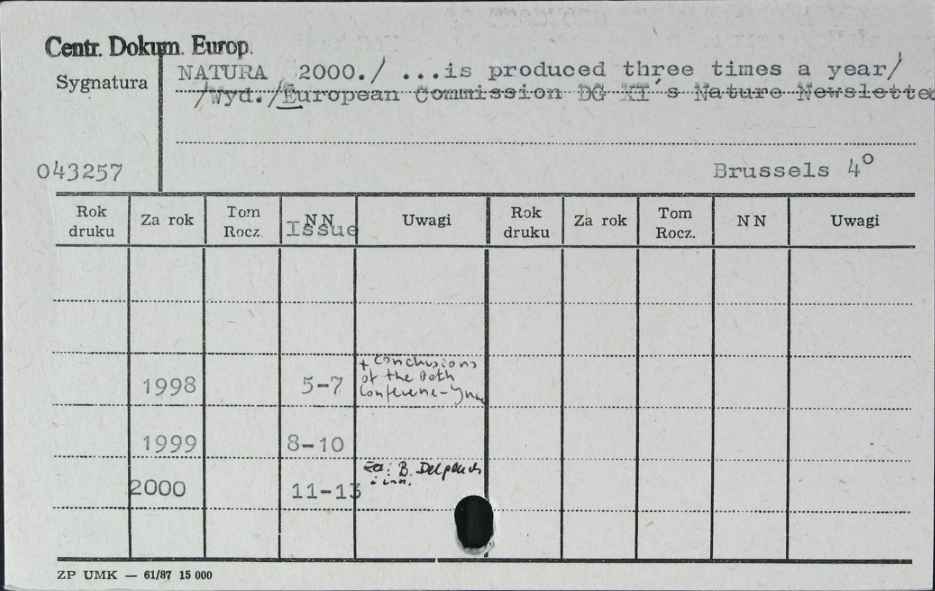 Centr. Dokum. Europ.
Sygnatura
NATURA 2000./ ...is produced three times a year/
/Wyd./European Commission DG XI's Nature Newslette
043257
Brussels 4°
Rok druku Za rok Tom Rocz. NN Issue Uwagi Rok druku Za rok Tom Rocz. NN Uwagi
1998 5-7 + Conclusions
of the Bath
Conference-
1999 8-10
2000 11-13 B. Delpeuch
i inn.
ZP UMK — 61/87 15 000